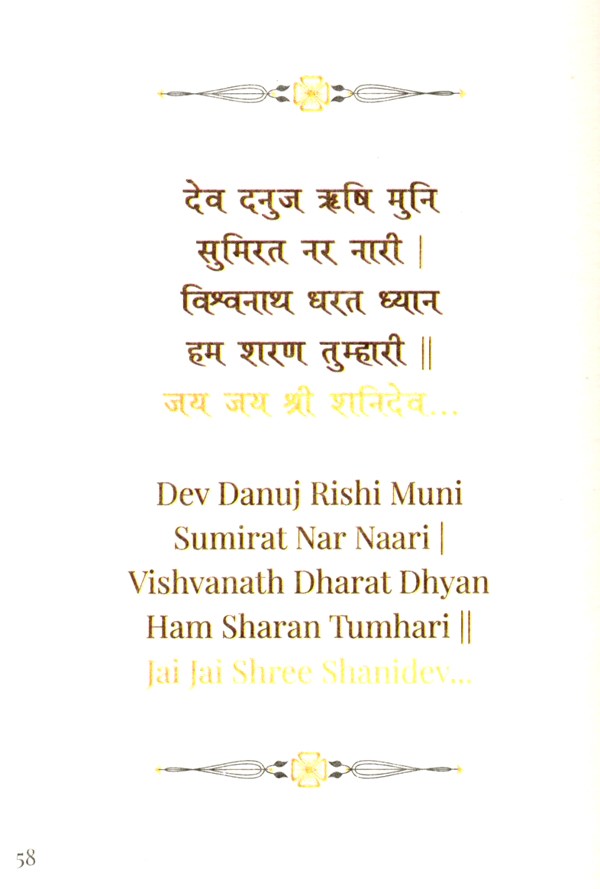 देव दनुज ऋषि मुनि
सुमिरत नर नारी |
विश्वनाथ धरत ध्यान
हम शरण तुम्हारी ||
जय जय श्री शनिदेव...
Dev Danuj Rishi Muni
Sumirat Nar Naari |
Vishvanath Dharat Dhyan
Ham Sharan Tumhari ||
Jai Jai Shree Shanidev...
58